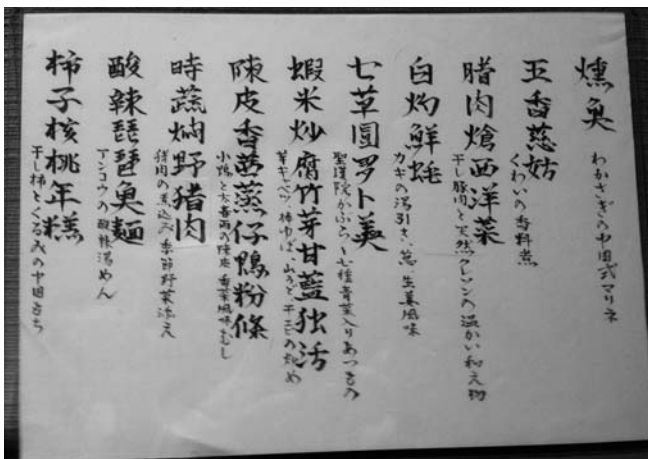 燻魚
わかさぎの中国式マリネ
五香慈姑
くわいの香料煮
腊肉熗西洋菜
干し豚肉と天然クレソンの温かい和え物
白灼鮮蚝
カキの湯引き、葱、生姜風味
七草圓罗卜羹
聖護院かぶらと七種青菜入りあつもの
蝦米炒腐竹芽甘藍独活
芽キャベツ、棒ゆば、山うど、干エビの炒め
陳皮香茜蒸仔鴨粉條
小鴨と太春雨の陳皮、香菜風味むし
時蔬焖野猪肉
猪肉の煮込み 季節野菜添え
酸辣琵琶魚麺
アンコウの酸辣湯めん
柿子核桃年糕
干し柿とくるみの中国もち